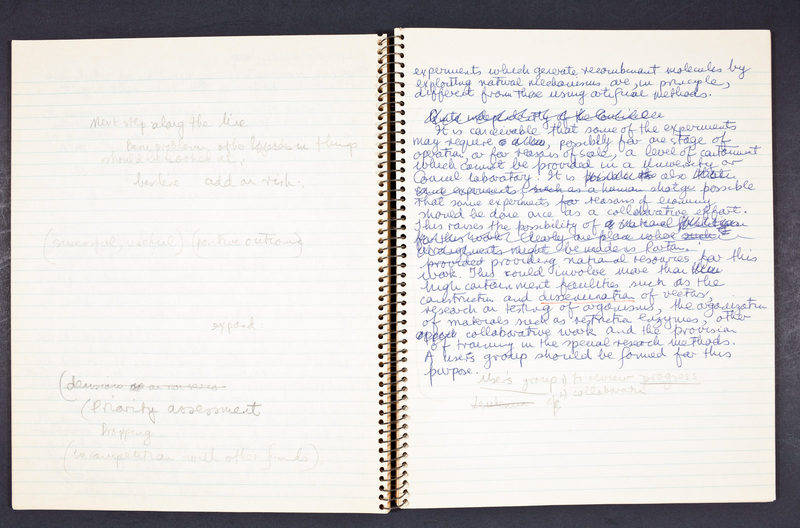 Next step along the line
things
should be looked at.
add on risk.
(successful, useful) (positive outcome
expand
(Priority assessment
Dropping
(in competition with other funds)
experiments which generate recombinant molecules by
exploiting natural mechanisms are, in principle,
different from those using artificial methods.
It is conceivable that some of the experiments
may require possibly for one stage of
operation, or for reasons of scale, a level of containment
which cannot be provided in a University or
Council laboratory. It is also
some experiments such as a human shotgun possible
that some experiments for reasons of economy
should be done once as a collaborative effort.
This raises the possibility of a national
for this work. Clearly one place
arrangements might be made in
provided providing national resources for this
work. This could involve more than
high containment facilities such as the
construction and dissemination of vectors,
research on testing of organisms, the organisation
of materials such as restriction enzymes, other
collaborative work and the provision
of training in the special research methods.
A users group should be formed for this
purpose.
Users group i) to review progress
ii) collaboration